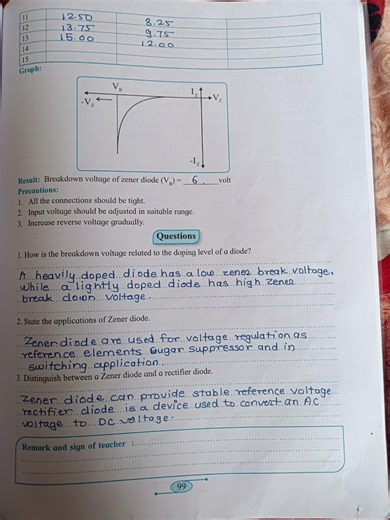 11 12.50 8.25
12 13.75 9.75
13 15.00 12.00
14
15
Graph:
VB
Iz
-Vz
Vz
-Iz
Result: Breakdown voltage of zener diode (VB) = 6 volt
Precautions:
1. All the connections should be tight.
2. Input voltage should be adjusted in suitable range.
3. Increase reverse voltage gradually.
Questions
1. How is the breakdown voltage related to the doping level of a diode?
A heavily doped diode has a low zener break voltage,
while a lightly doped diode has high zener
break down voltage.
2. State the applications of Zener diode.
Zener diode are used for voltage regulation as
reference elements Gugar suppressor and in
switching application.
3. Distinguish between a Zener diode and a rectifier diode.
Zener diode can provide stable reference voltage
rectifier diode is a device used to convert an AC
voltage to DC voltage.
Remark and sign of teacher :
99